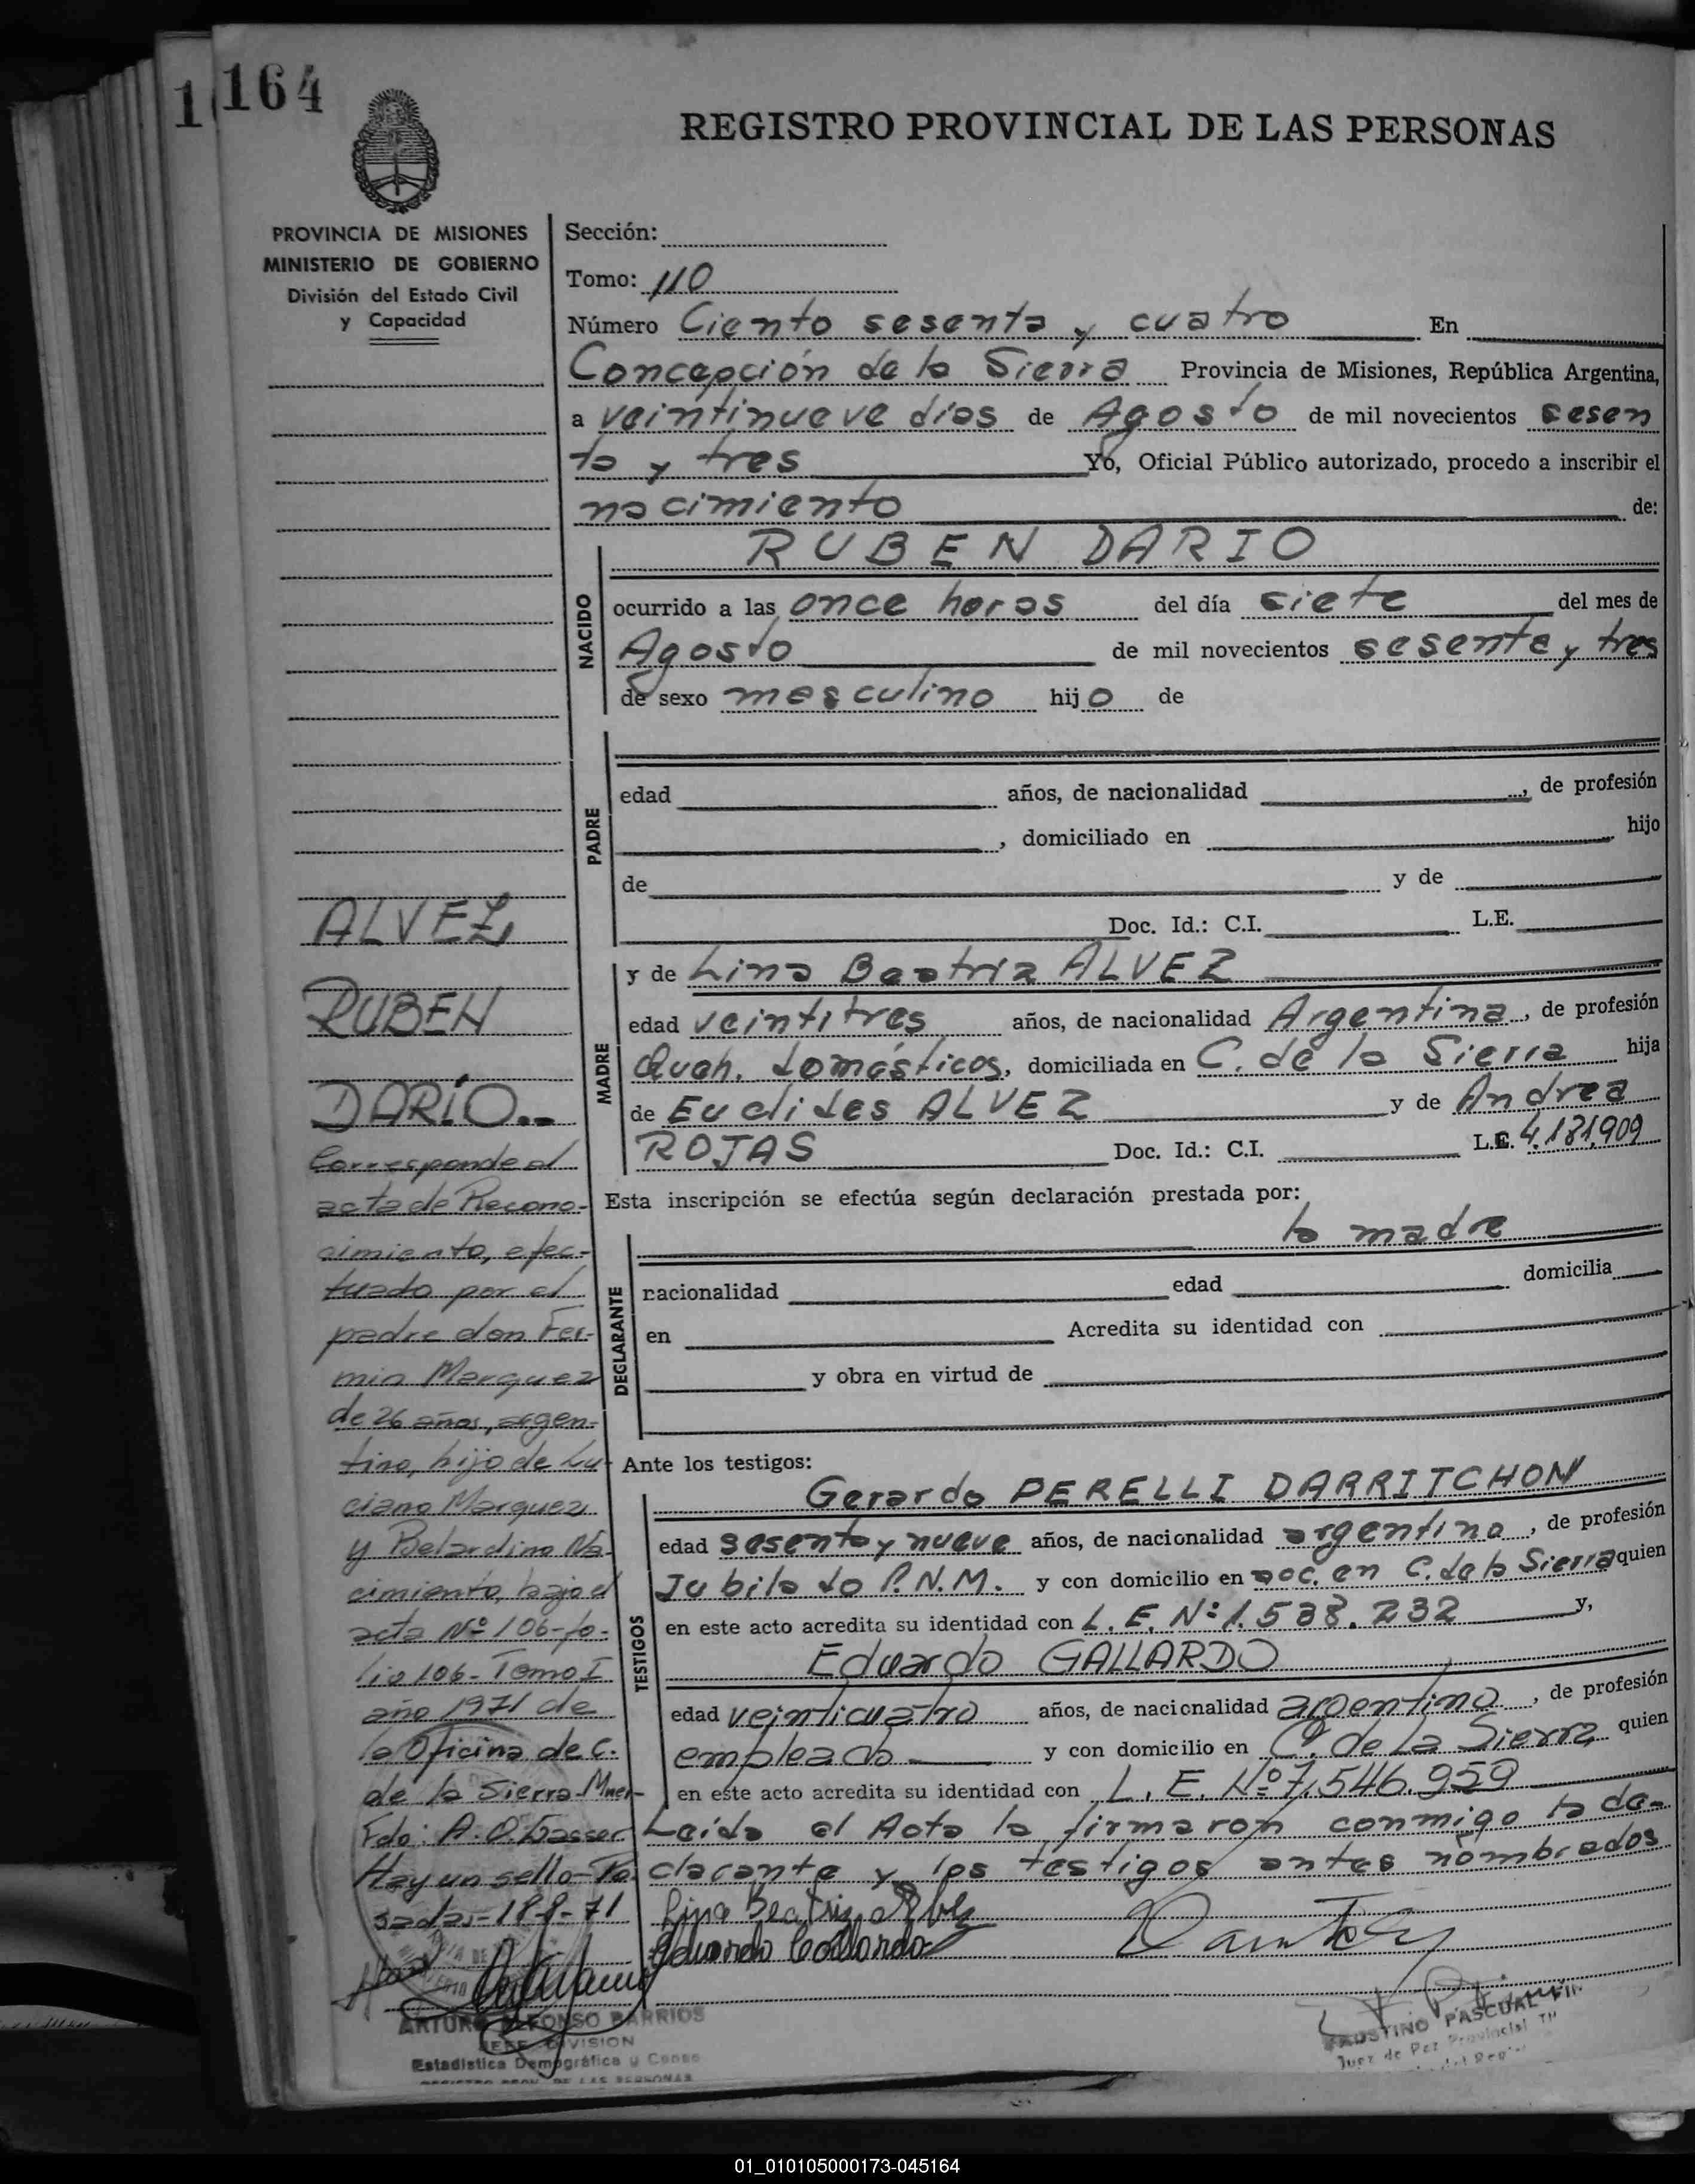 1 164
REGISTRO PROVINCIAL DE LAS PERSONAS
PROVINCIA DE MISIONES
MINISTERIO DE GOBIERNO
División del Estado Civil
y Capacidad
ALVEZ,
RUBEN
DARIO..
Corresponde al
acta de Recono-
cimiento, efec-
tuado por el
padre don Fer-
min Marquez
de 26 años, argen-
tino, hijo de Lu-
ciano Marquez
y Belardina Na-
cimiento, bajo el
acta Nº 106-fo-
lio 106- Tomo I
año 1971 de
la Oficina de C.
de la Sierra
Fdo: A. O.
Hay un sello-Po-
sadas-18-8-71
ARTURO ALFONSO BARRIOS
JEFE DIVISION
Estadística Demográfica y Censo
REGISTRO PROV. DE LAS PERSONAS
Sección:
Tomo: 110
Número Ciento sesenta y cuatro En
Concepción de la Sierra Provincia de Misiones, República Argentina,
a veintinueve días de Agosto de mil novecientos sesen
ta y tres Yo, Oficial Público autorizado, procedo a inscribir el
nacimiento de:
NACIDO
RUBEN DARIO
ocurrido a las once horas del día siete del mes de
Agosto de mil novecientos sesenta y tres
de sexo masculino hijo de
PADRE
edad años, de nacionalidad , de profesión
, domiciliado en hijo
de y de
Doc. Id.: C.I. L.E.
MADRE
y de Lina Beatriz ALVEZ
edad veintitres años, de nacionalidad Argentina, de profesión
Queh. domésticos, domiciliada en C. de la Sierra hija
de Euclides ALVEZ y de Andrea
ROJAS Doc. Id.: C.I. L.C. 4.181.909
Esta inscripción se efectúa según declaración prestada por:
la madre
DECLARANTE
nacionalidad edad domicilia
en Acredita su identidad con
y obra en virtud de
Ante los testigos:
TESTIGOS
Gerardo PERELLI DARRITCHON
edad sesenta y nueve años, de nacionalidad argentina, de profesión
Jubilado P.N.M. y con domicilio en acc. en C. de la Sierra quien
en este acto acredita su identidad con L. E. Nº 1.538.232 y,
Eduardo GALLARDO
edad veinticuatro años, de nacionalidad argentino, de profesión
empleado y con domicilio en C. de La Sierra quien
en este acto acredita su identidad con L. E. Nº 7.546.959
Leída el Acta la firmaron conmigo la de-
clarante y los testigos antes nombrados
Lina Beatriz Alvez
Eduardo Gallardo
FAUSTINO PASCUAL
Juez de Paz Provincial
01_010105000173-045164